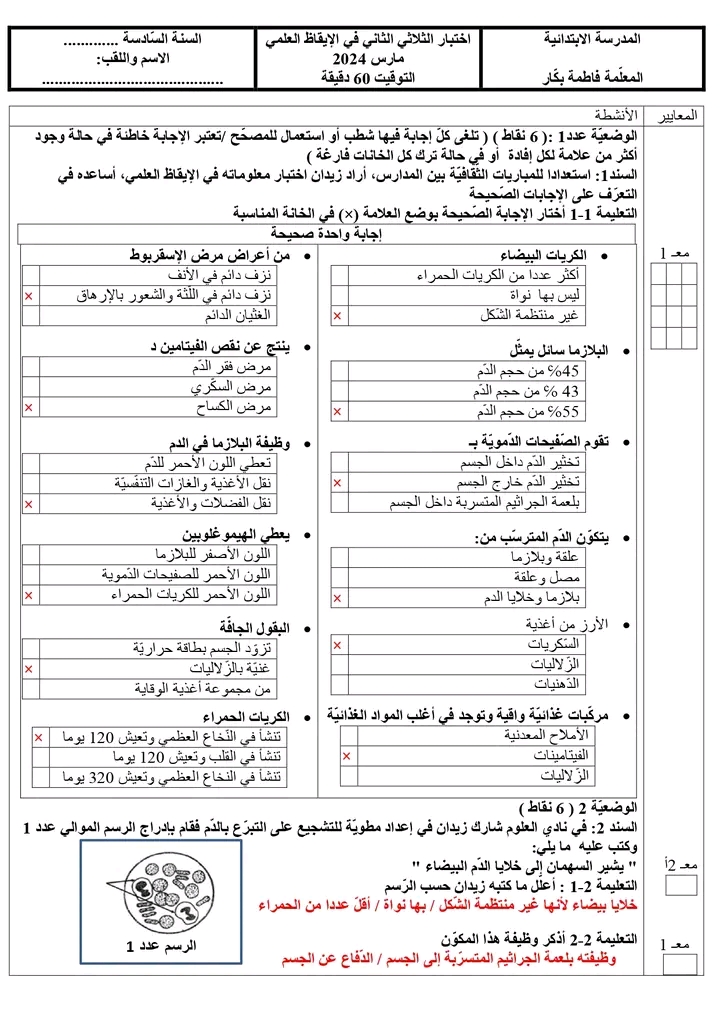 المدرسة الابتدائية
المعلّمة فاطمة بكّار
اختبار الثلاثي الثاني في الإيقاظ العلمي
مارس 2024
التوقيت 60 دقيقة
السنة السّادسة .............
الاسم واللقب:
...........................................
المعايير
الأنشطة
الوضعيّة عدد1 :( 6 نقاط ) ( تلغى كلّ إجابة فيها شطب أو استعمال للمصحّح /تعتبر الإجابة خاطئة في حالة وجود
أكثر من علامة لكل إفادة أو في حالة ترك كل الخانات فارغة )
السند1: استعدادا للمباريات الثّقافيّة بين المدارس، أراد زيدان اختبار معلوماته في الإيقاظ العلمي، أساعده في
التعرّف على الإجابات الصّحيحة
التعليمة 1-1 أختار الإجابة الصّحيحة بوضع العلامة (×) في الخانة المناسبة
إجابة واحدة صحيحة
معـ 1
• الكريات البيضاء
أكثر عددا من الكريات الحمراء
ليس بها نواة
غير منتظمة الشّكل ×
• البلازما سائل يمثّل
45% من حجم الدّم
43 % من حجم الدّم
55% من حجم الدّم ×
• تقوم الصّفيحات الدّمويّة بـ
تخثير الدّم داخل الجسم
تخثير الدّم خارج الجسم ×
بلعمة الجراثيم المتسربة داخل الجسم
• يتكوّن الدّم المترسّب من:
علقة وبلازما
مصل وعلقة
بلازما وخلايا الدم ×
• الأرز من أغذية
السّكريات ×
الزّلاليات
الدّهنيات
• مركّبات غذائيّة واقية وتوجد في أغلب المواد الغذائيّة
الأملاح المعدنية
الفيتامينات ×
الزّلاليات
• من أعراض مرض الإسقربوط
نزف دائم في الأنف
نزف دائم في اللّثة والشعور بالإرهاق ×
الغثيان الدائم
• ينتج عن نقص الفيتامين د
مرض فقر الدّم
مرض السكّري
مرض الكساح ×
• وظيفة البلازما في الدم
تعطي اللون الأحمر للدّم
نقل الأغذية والغازات التنفّسيّة
نقل الفضلات والأغذية ×
• يعطي الهيموغلوبين
اللون الأصفر للبلازما
اللون الأحمر للصفيحات الدّموية
اللون الأحمر للكريات الحمراء ×
• البقول الجافّة
تزوّد الجسم بطاقة حراريّة
غنيّة بالزّلاليات ×
من مجموعة أغذية الوقاية
• الكريات الحمراء
تنشأ في النّخاع العظمي وتعيش 120 يوما ×
تنشأ في القلب وتعيش 120 يوما
تنشأ في النخاع العظمي وتعيش 320 يوما
الوضعيّة 2 ( 6 نقاط )
السند 2: في نادي العلوم شارك زيدان في إعداد مطويّة للتشجيع على التبرّع بالدّم فقام بإدراج الرسم الموالي عدد 1
وكتب عليه ما يلي:
" يشير السهمان إلى خلايا الدّم البيضاء "
معـ 2أ
التعليمة 2-1 : أعلّل ما كتبه زيدان حسب الرّسم
خلايا بيضاء لأنها غير منتظمة الشّكل / بها نواة / أقلّ عددا من الحمراء
التعليمة 2-2 أذكر وظيفة هذا المكوّن
معـ 1
وظيفته بلعمة الجراثيم المتسرّبة إلى الجسم / الدّفاع عن الجسم
الرسم عدد 1